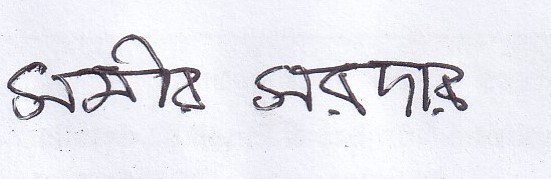 সমীর সরদার